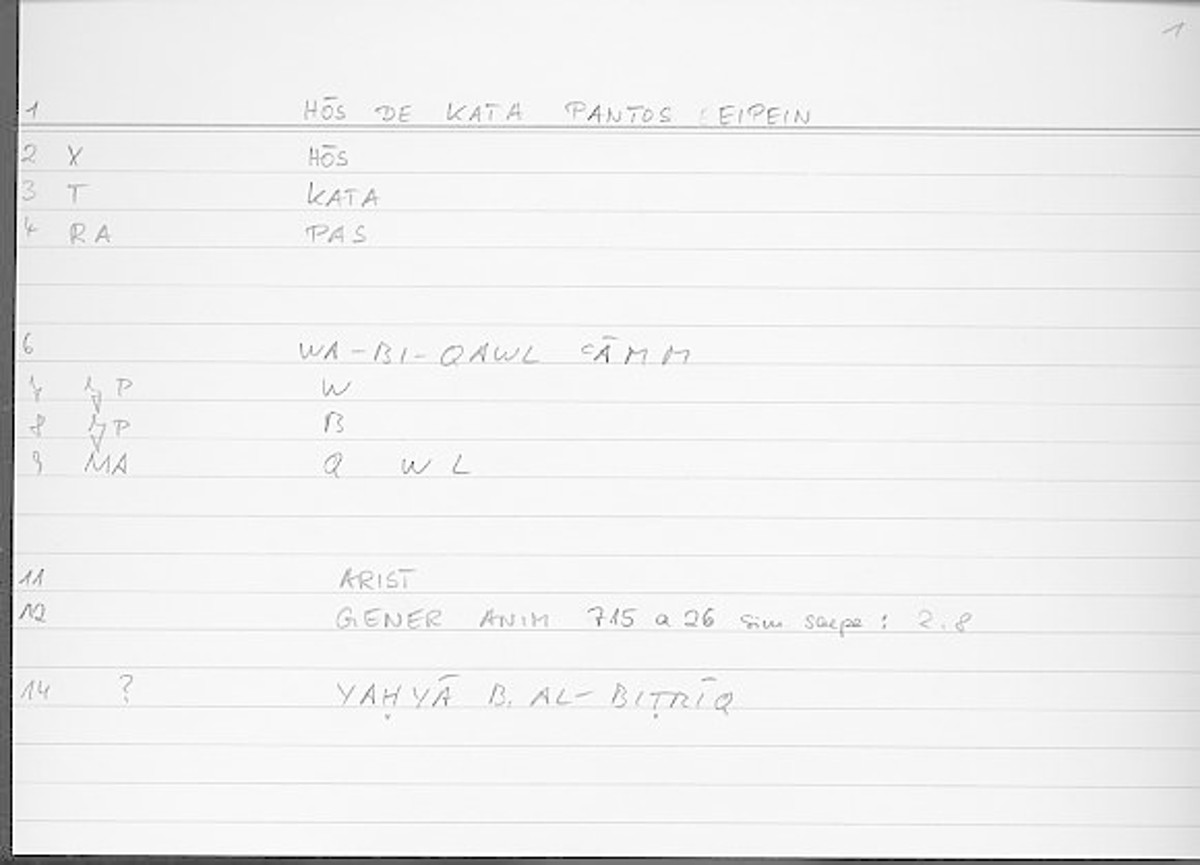 1
1 HŌS DE KATA PANTOS EIPEIN
2 X HŌS
3 T KATA
4 RA PAS
6 WA-BI-QAWL ʿĀMM
7 P W
8 P B
9 MA Q W L
11 ARIST
12 GENER ANIM 715 a 26 sim saepe: 2.8
14 ? YAḤYĀ B. AL-BIṬRĪQ